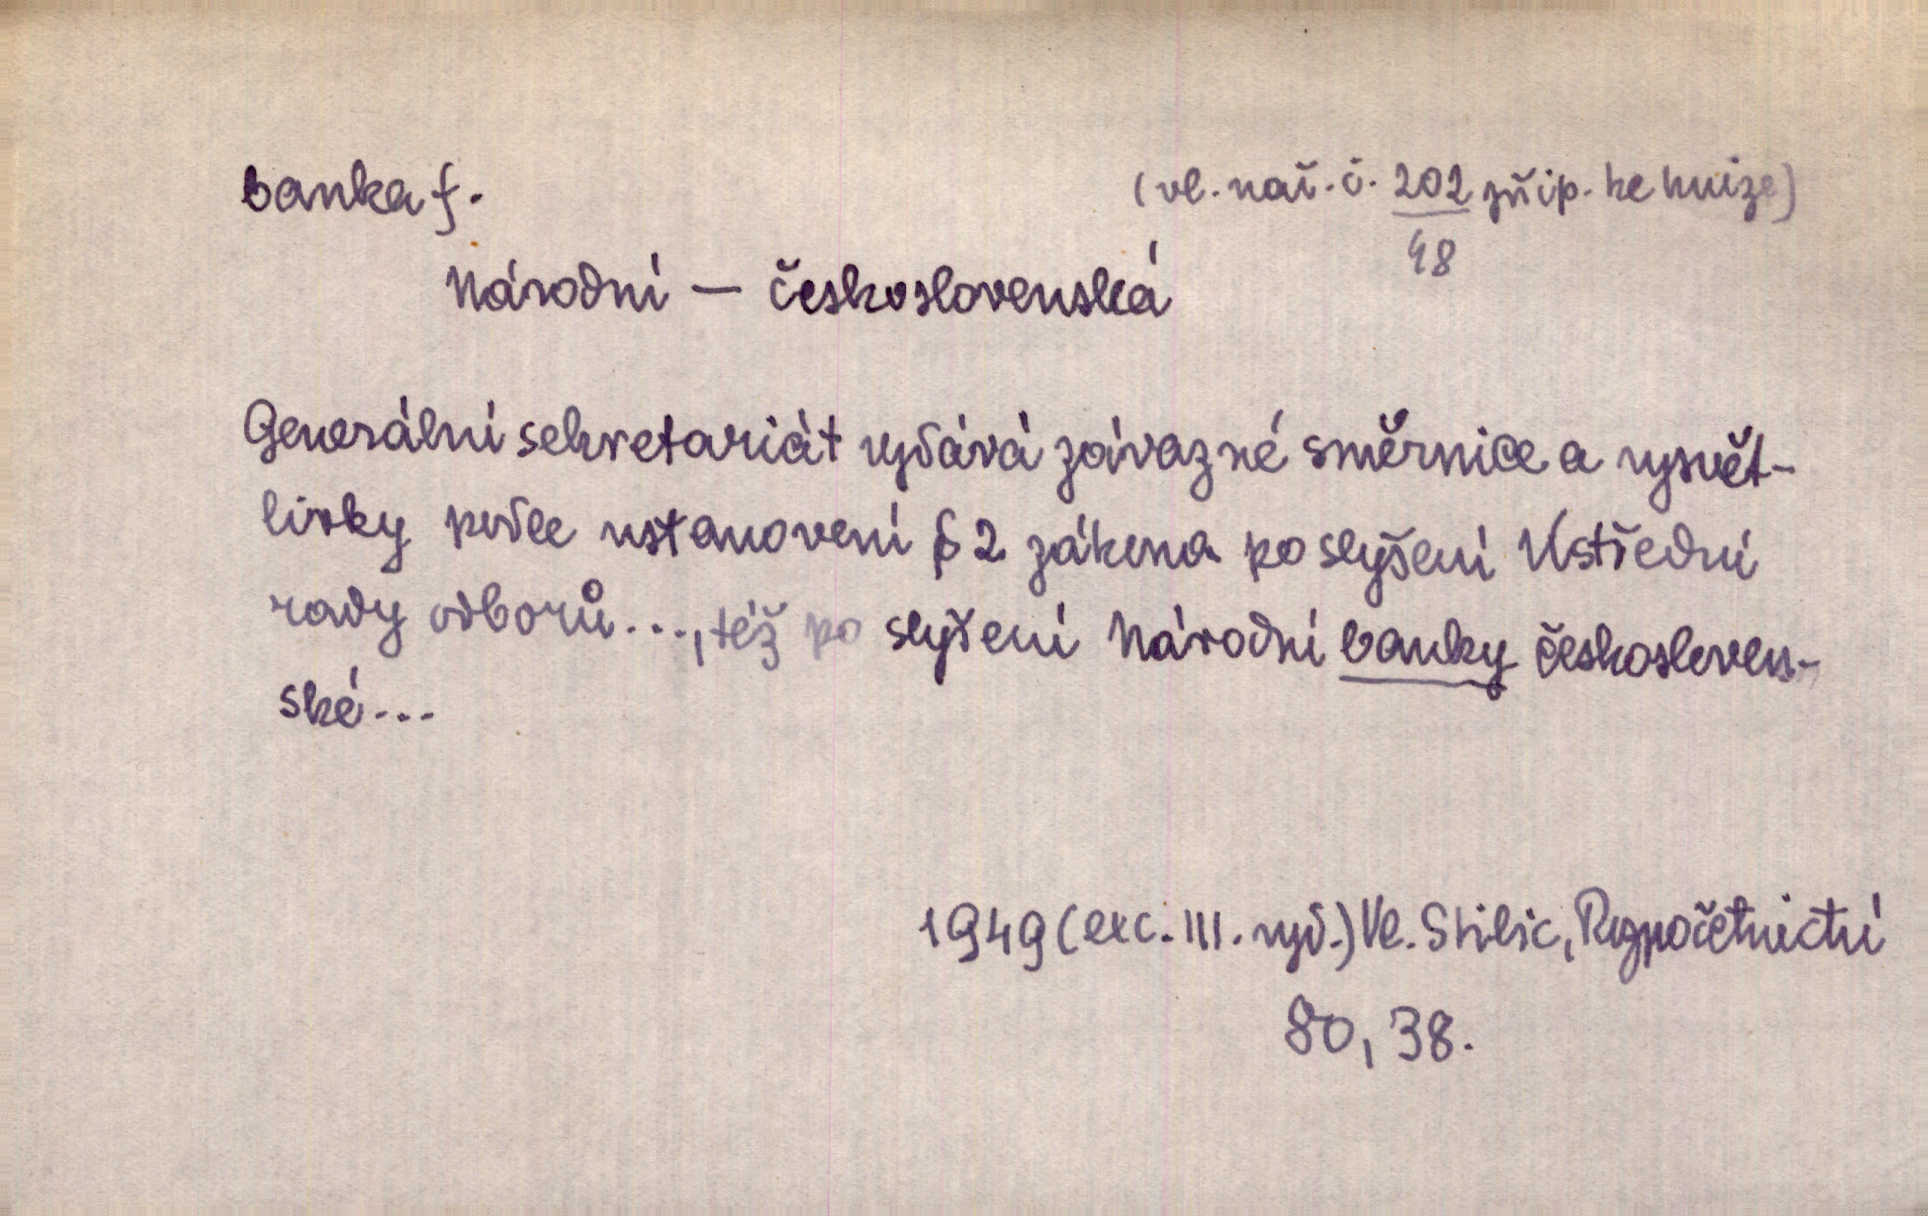 banka f.
(vl. nař. č. 202 přip. ke knize)
48
Národní — československá
Generální sekretariát vydává závazné směrnice a vysvět-
livky podle ustanovení § 2 zákona po slyšení Ústřední
rady odborů..., též po slyšení Národní banky českosloven-
ské...
1949 (exc. III. vyd.) Vl. Stibic, Rozpočetnictví
80, 38.